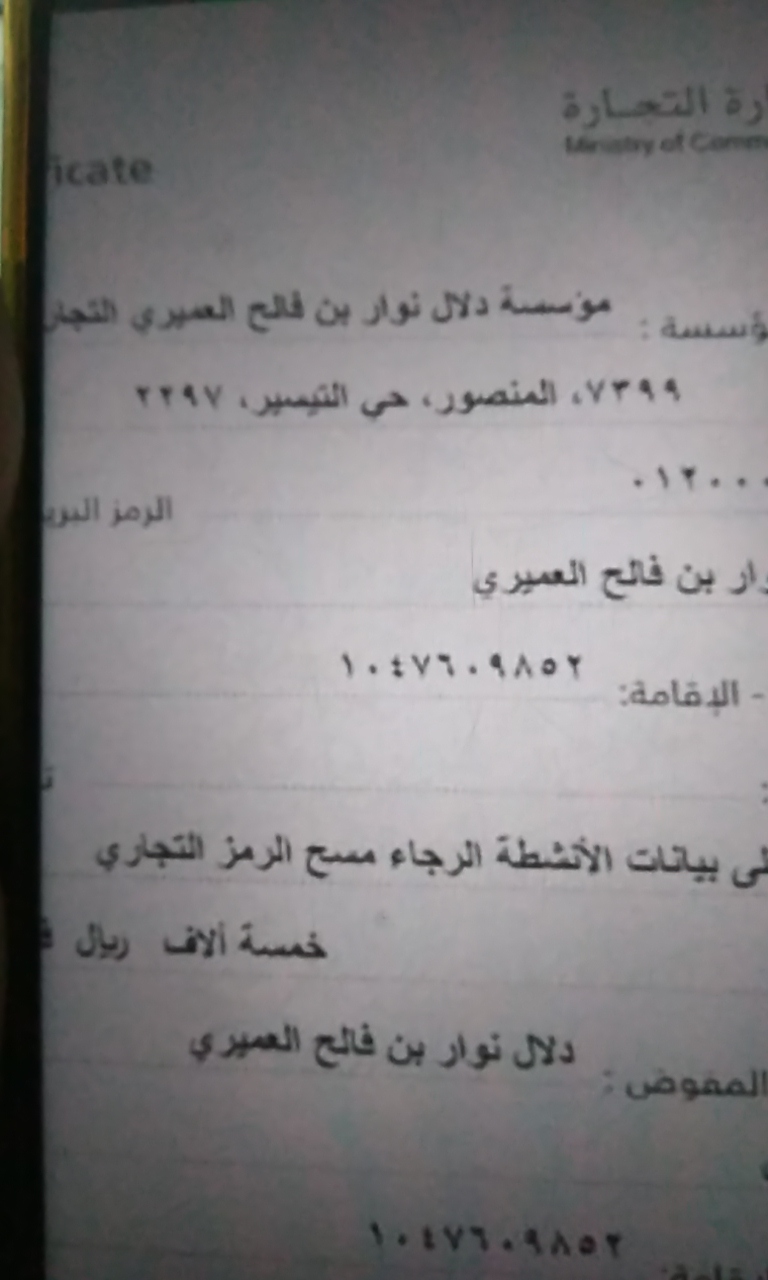 التجارة
Ministry of
icate
مؤسسة دلال نوار بن فالح العميري
٧٣٩٩، المنصور، حي التيسير، ٢٢٩٧
٠١٢٠٠٠
الرمز
بن فالح العميري
- الإقامة: ١٠٤٧٦٠٩٨٥٢
بيانات الأنشطة الرجاء مسح الرمز التجاري
خمسة آلاف ريال
المفوض : دلال نوار بن فالح العميري
١٠٤٧٦٠٩٨٥٢